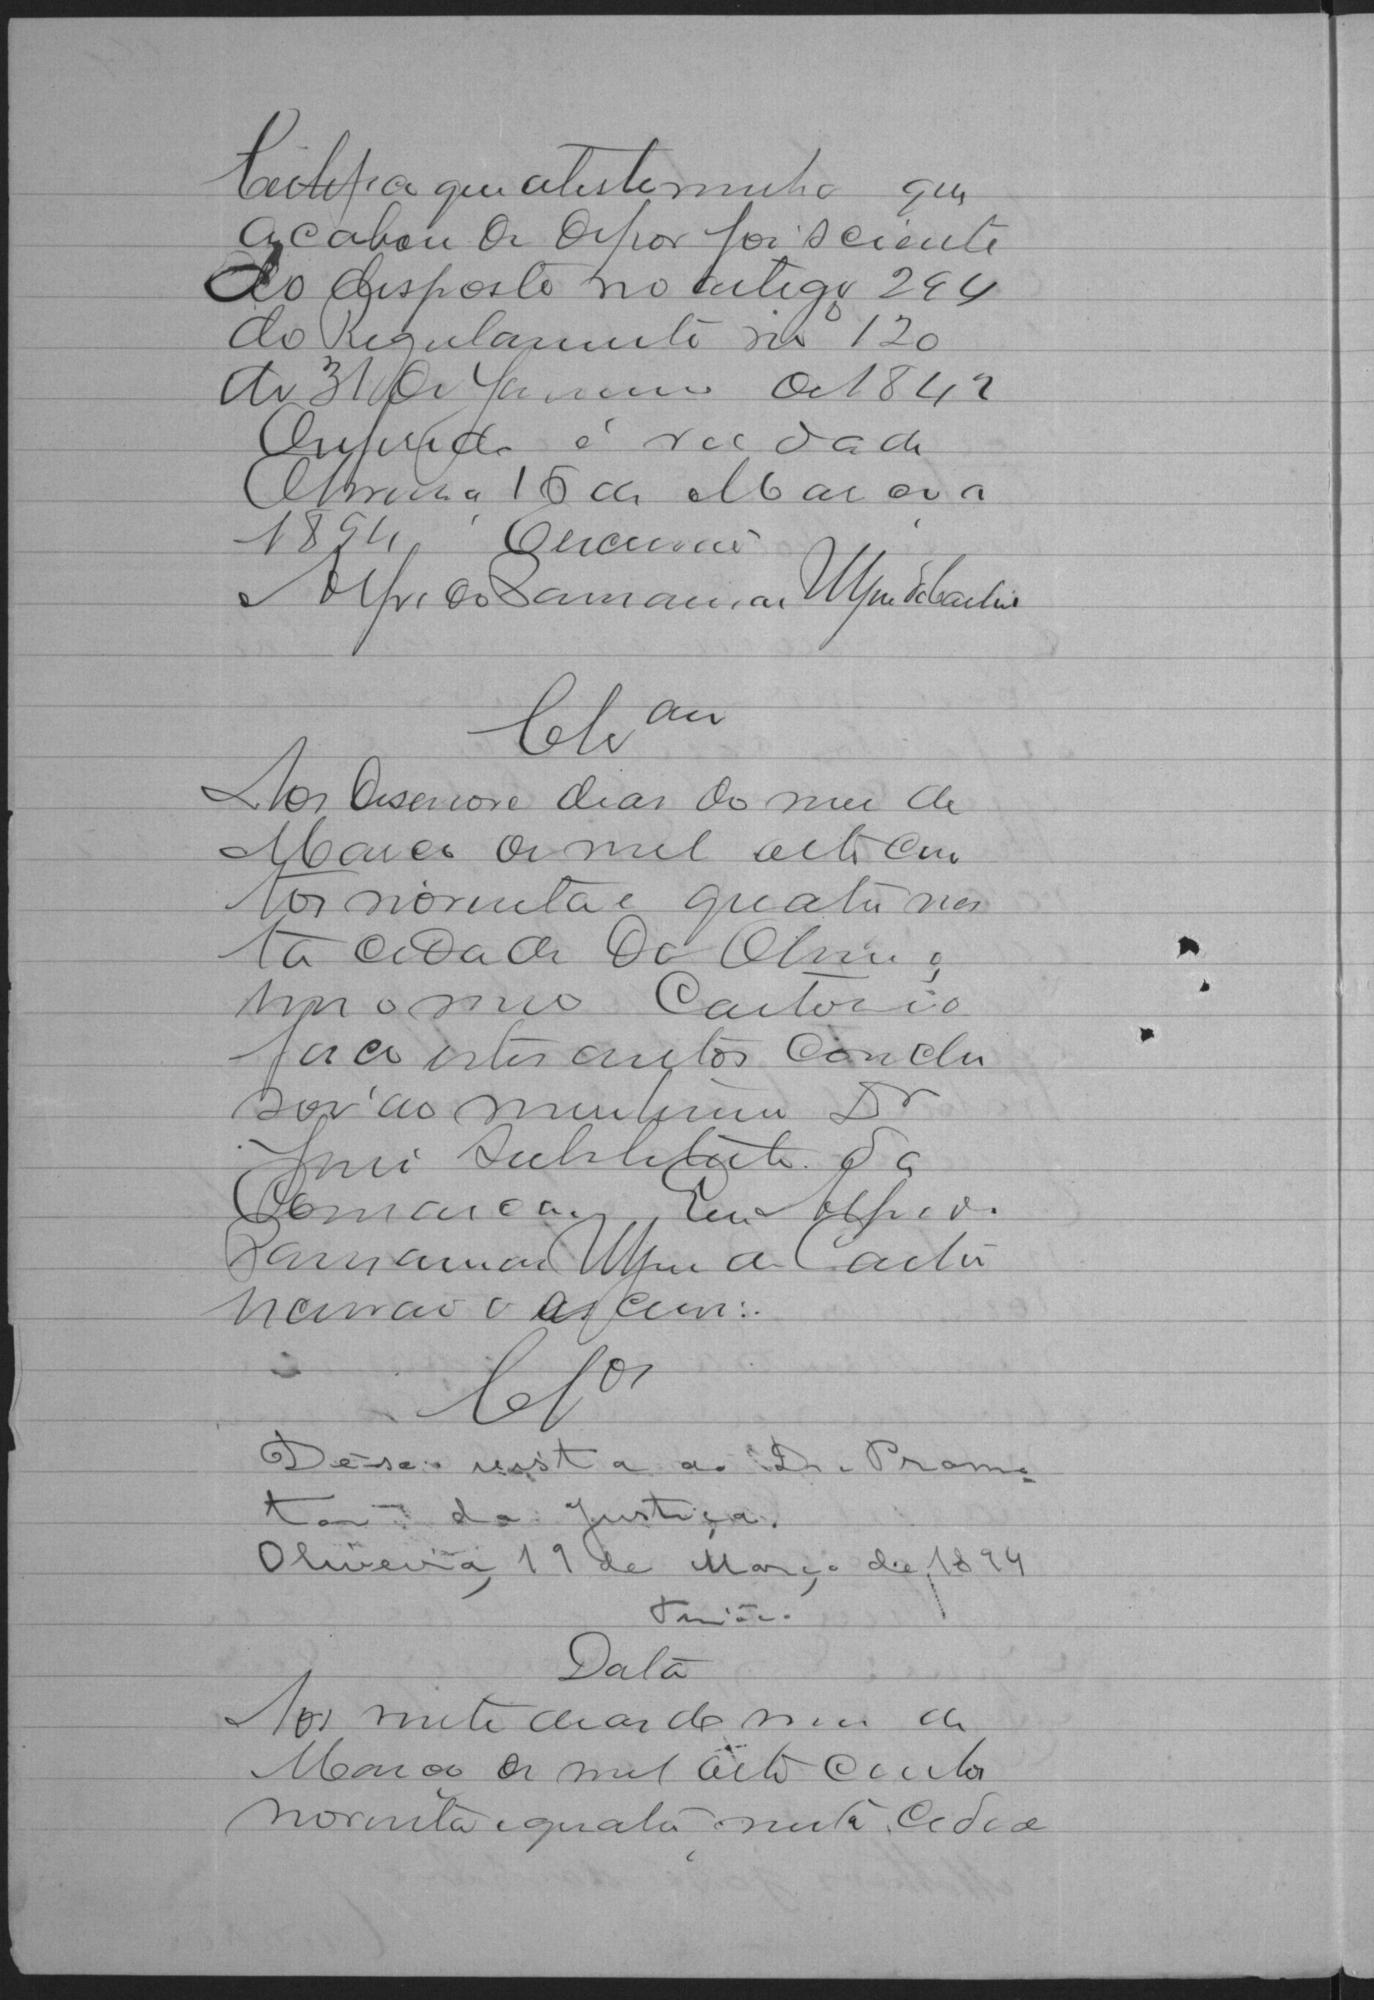 Certifico que a testemunha que
acabou de depor foi sciente
do disposto no artigo 294
do Regulamento nº 120
de 31 de Janeiro de 1842
O referido é verdade
Oliveira, 15 de Março de
1894, O escrivão
Alfredo de Castro
Cls
Aos desenove dias do mez de
Março de mil oito cen
tos noventa e quatro nes
ta cidade de Oliveira,
em o meo Cartorio
faço estes autos conclu
sos ao meritissimo Dr
Juiz Substituto da
Comarca, Eu Alfredo
de Castro
escrivão o escrevi.
Clos
Dê-se vista ao Dr. Promo-
tor da Justiça.
Oliveira, 19 de Março de 1894
Data
Aos vinte dias do mez de
Março de mil oito centos
noventa e quatro nesta cidade